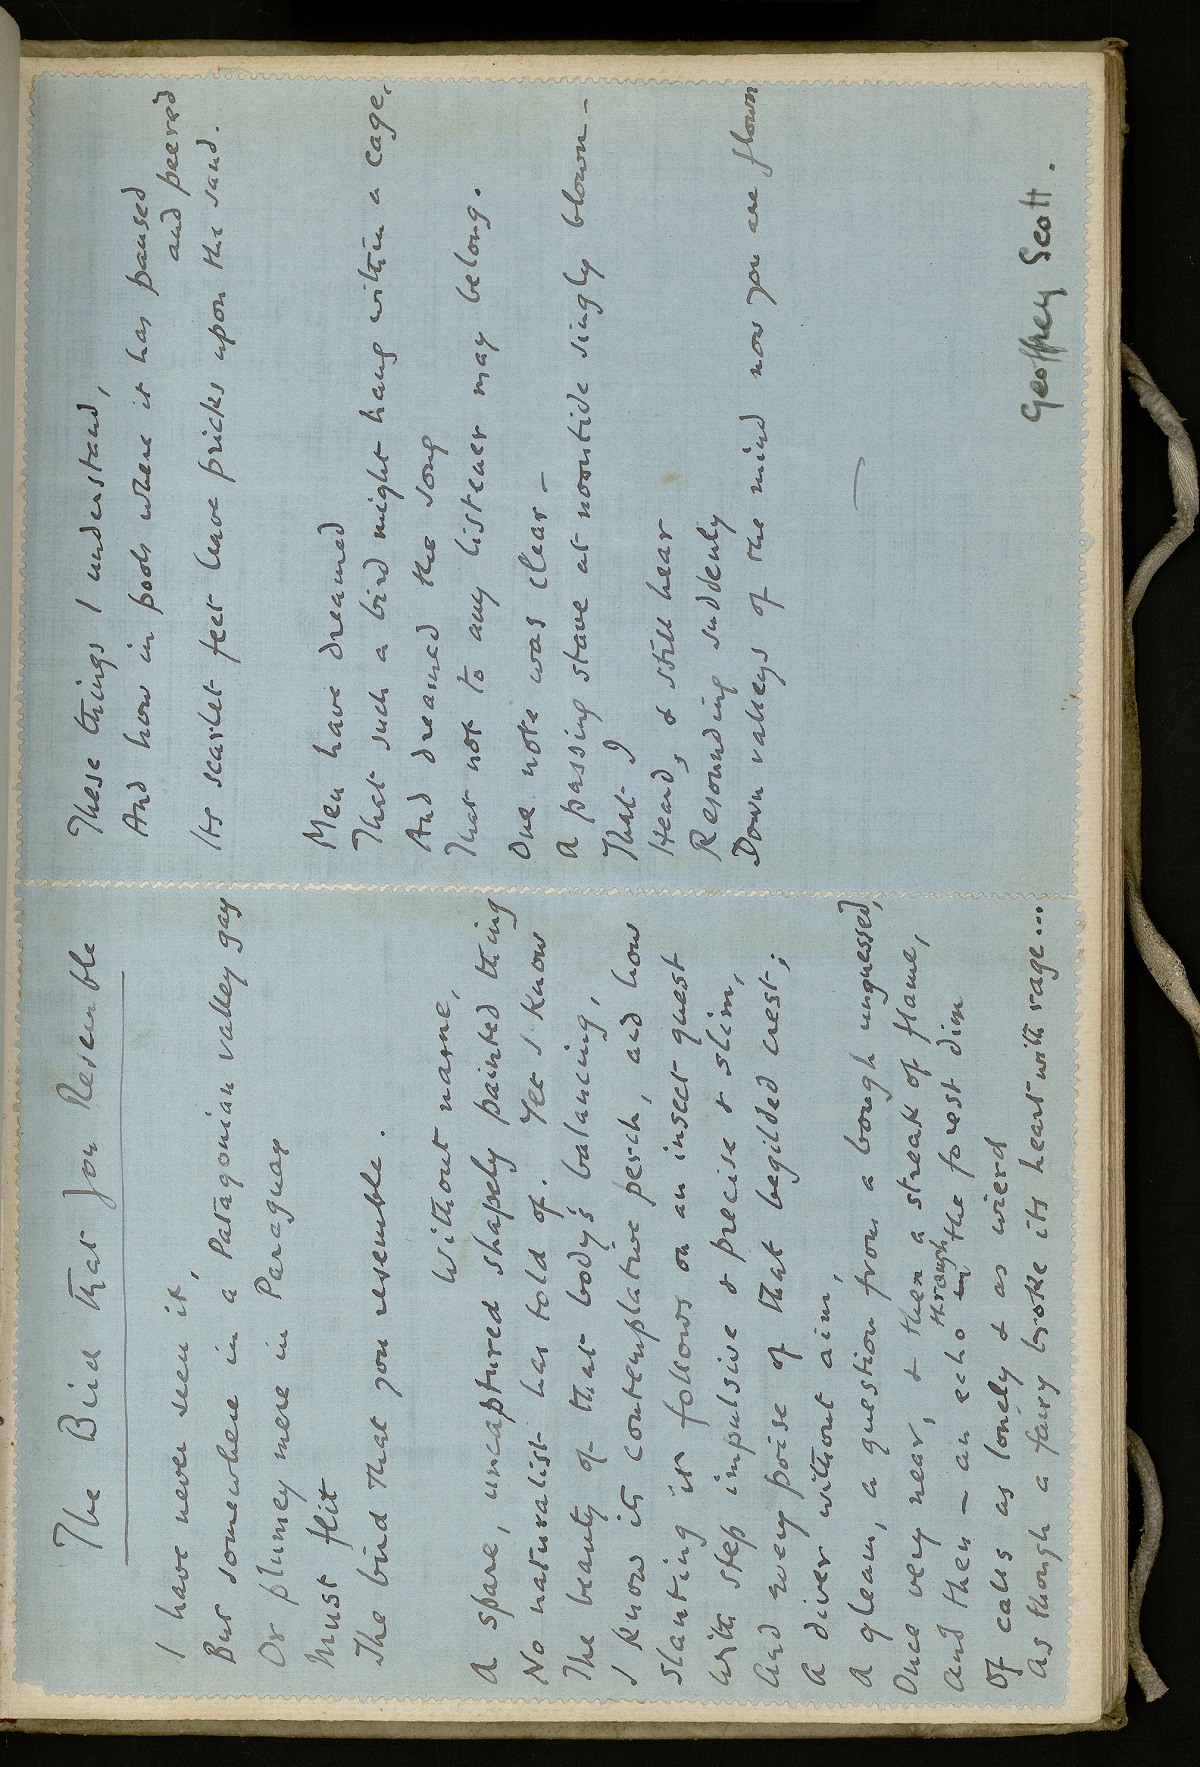 The Bird that you Resemble
I have never seen it,
But somewhere in a Patagonian valley gay
Or plumey mere in Paraguay
Must flit
The bird that you resemble.
Without name,
A spare, uncaptured shapely painted thing
No naturalist has told of. Yet I know
The beauty of that body's balancing,
I know its contemplative perch, and how
Slanting it follows on an insect quest
With step impulsive & precise & slim,
And very poise of that begilded crest;
A diver without aim,
A gleam, a question from a bough unguessed,
Once very near, & then a streak of flame,
And then – an echo in through the forest dim
Of calls as lonely & as wierd
As though a fairy broke its heart with rage...
These things I understand,
And how in pools where it has paused
and peered
Its scarlet feet leave pricks upon the sand.
Men have dreamed
That such a bird might hang within a cage,
And dreamed the song
That not to any listener may belong.
One note was clear –
A passing stave at noontide singly blown –
That I
Heard, & still hear
Resounding suddenly
Down valleys of the mind now you are flown
Geoffrey Scott.